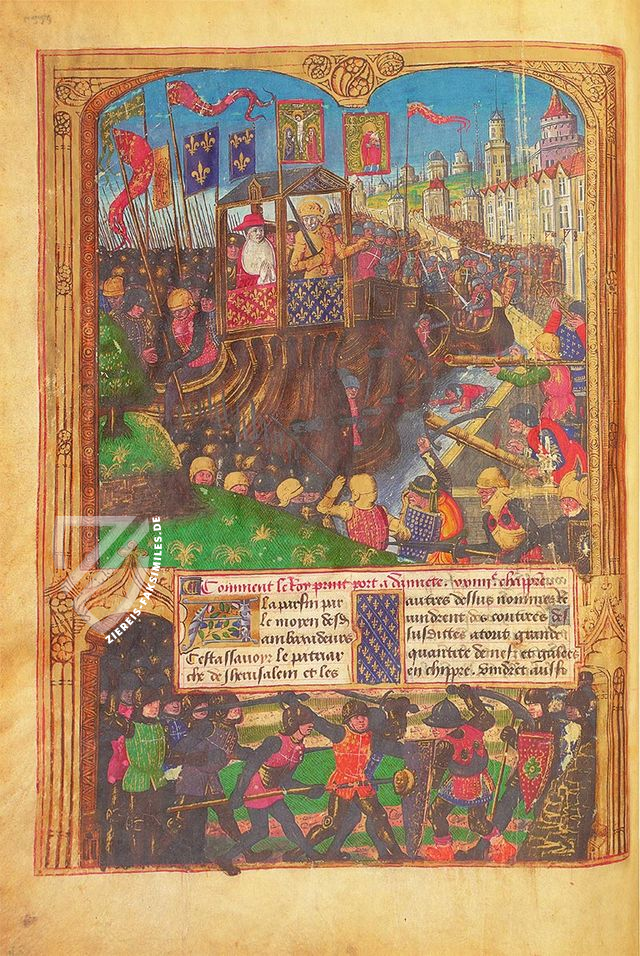 Comment le Roy print port a damiete. xxviiiᵉ chapitre
A la parfin par
le moyen desd
ambaxadeurs
Cestassavoir le patriar
che de Iherusalem et les
autres dessus nommez Re
vindrent des contrees des
susdittes atout grande
quantite de nefz et galees
en chippre. vindret aussi
ZIEREIS-FAKSIMILES.DE